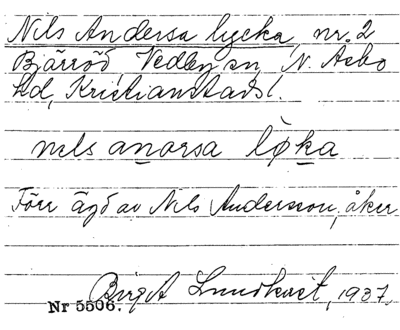 Nils Andersa lycka, nr. 2
Bjärröd Vedby sn, N. Åsbo
hd, Kristianstads l.
nels anorsa løka
Förr ägd av Nils Andersson, åker
Birgit Lundkvist, 1937.
Nr 5506.